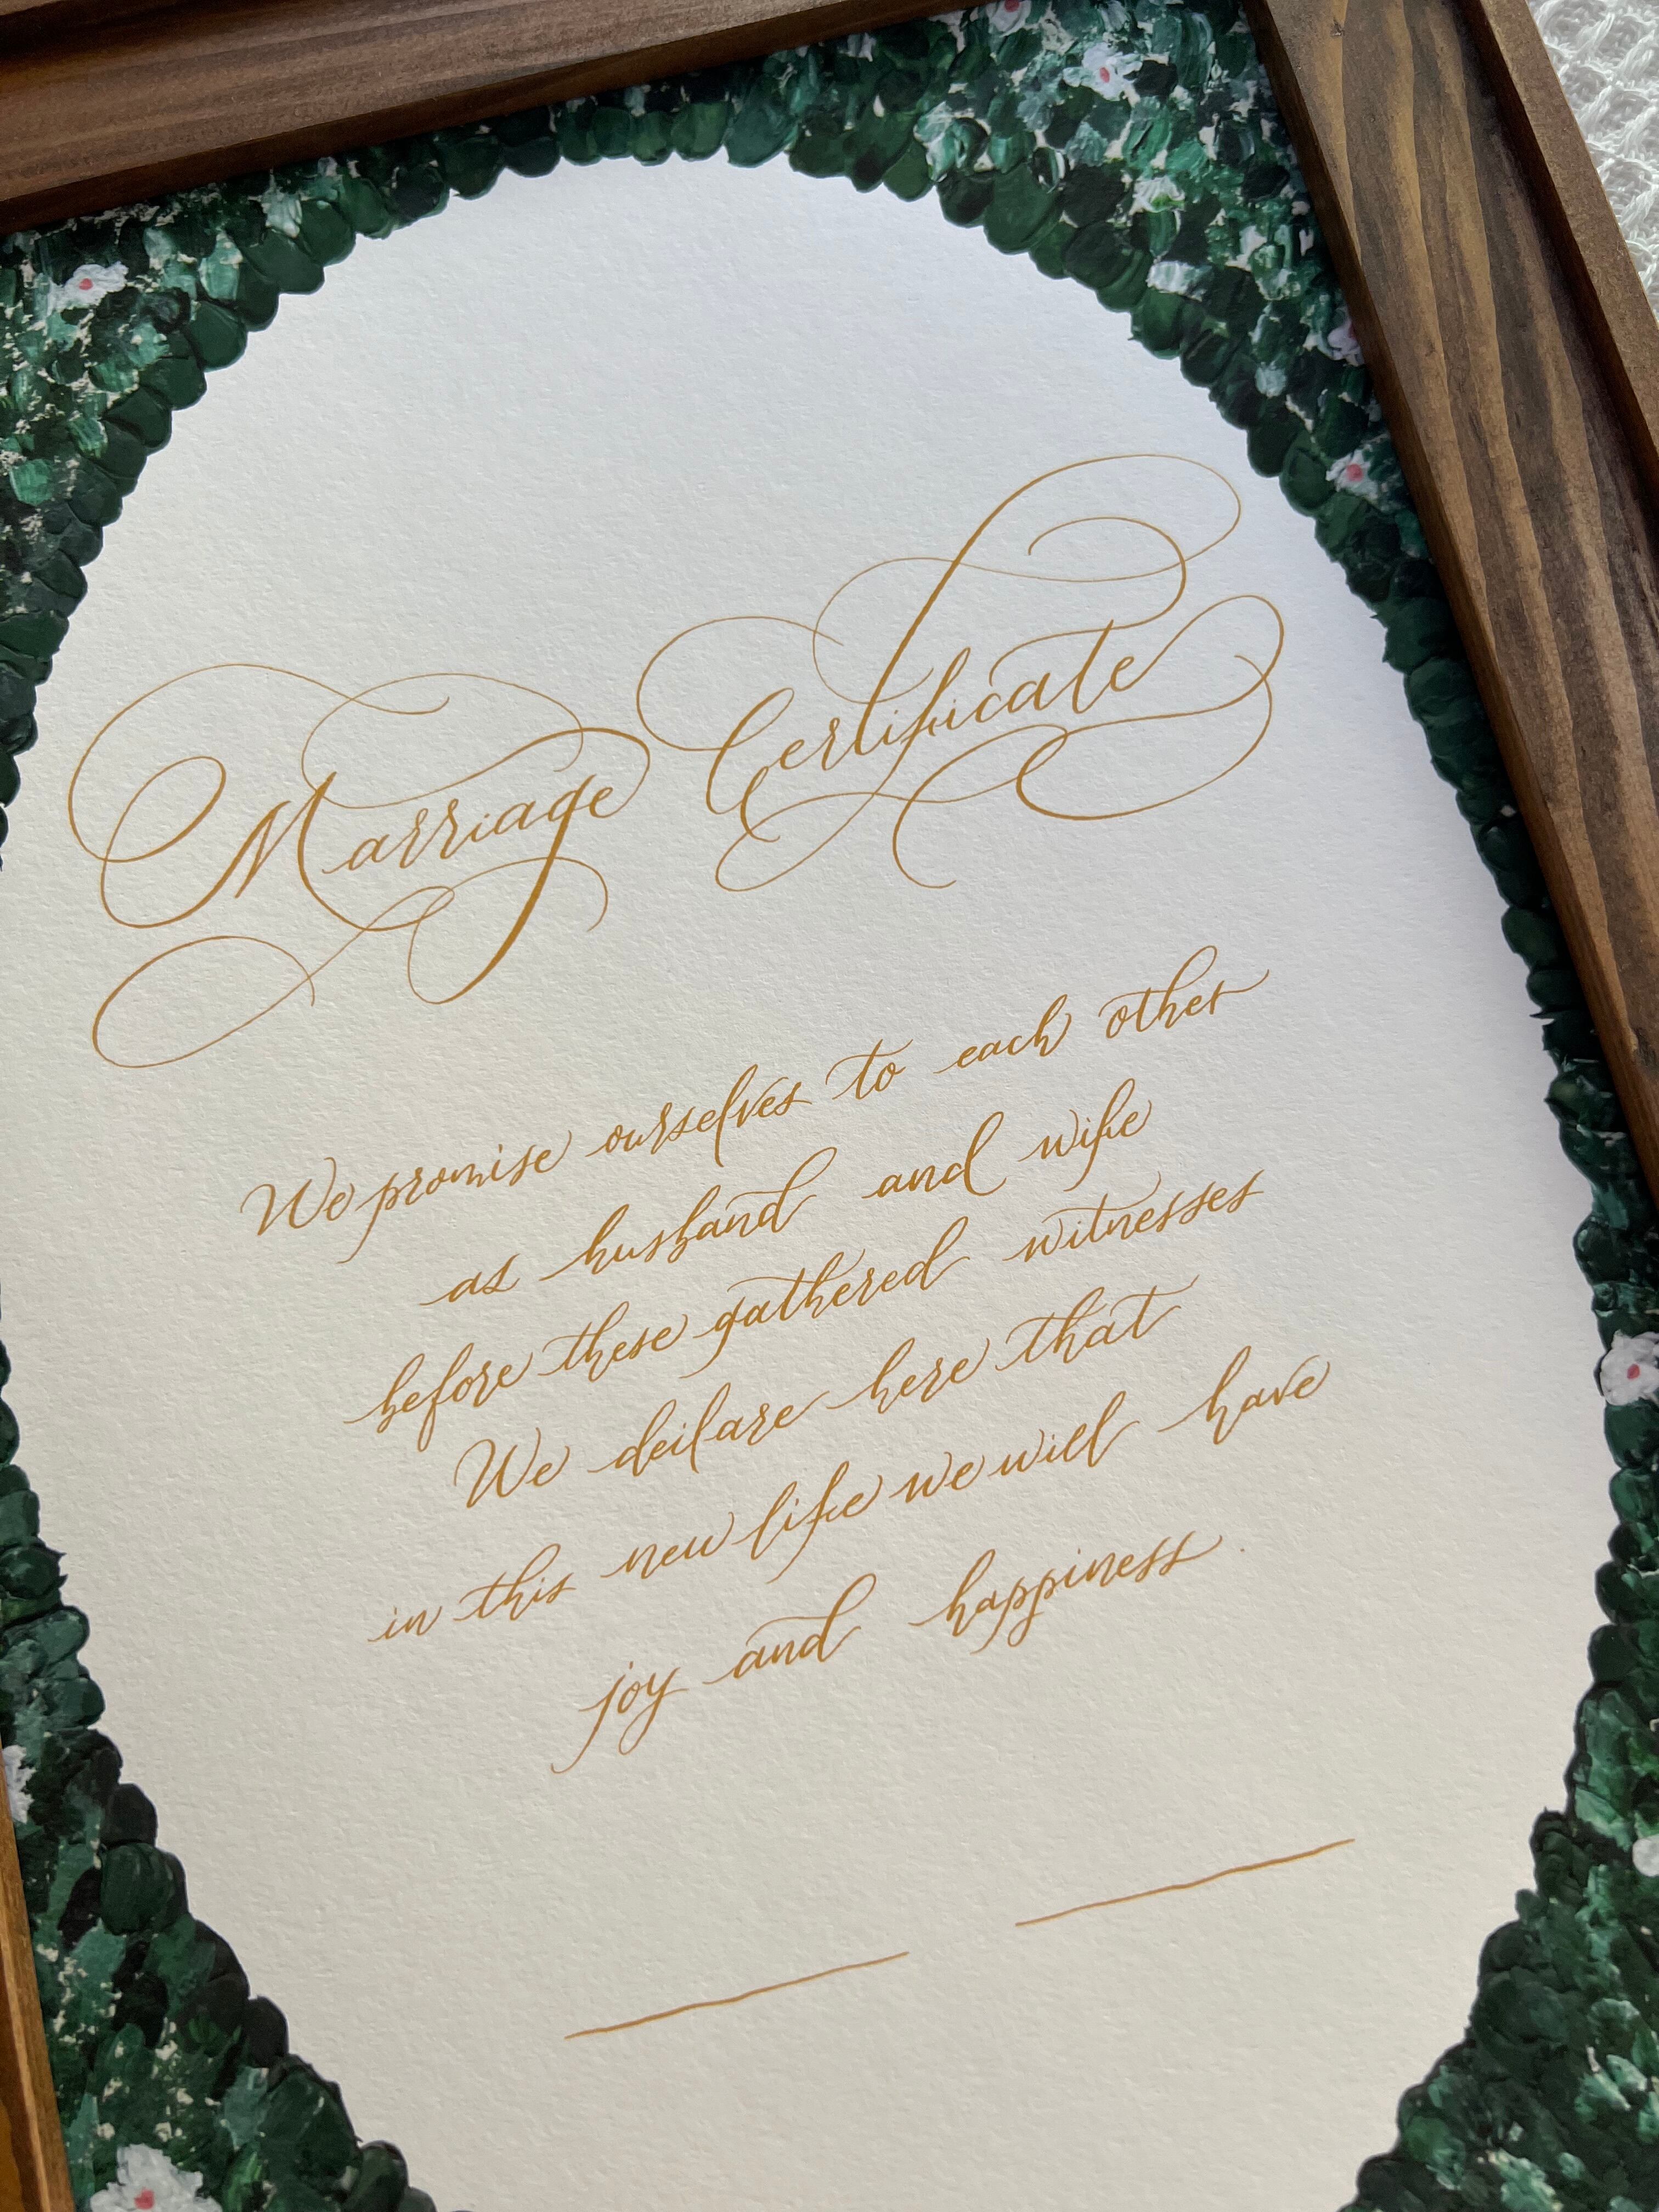 Marriage Certificate
We promise ourselves to each other
as husband and wife
before these gathered witnesses
We declare here that
in this new life we will have
joy and happiness.